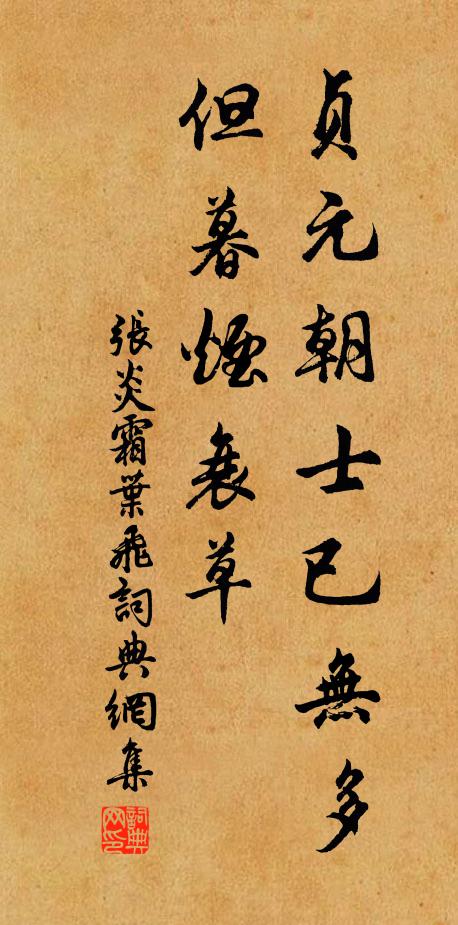 貞元朝士已無多
但暮煙衰草
張炎霜葉飛詞典網集
詞典网印